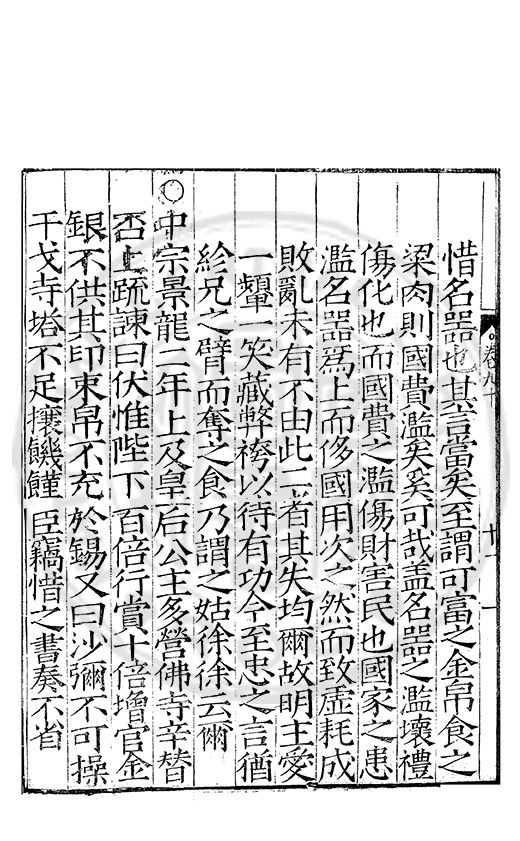 卷九十 十一
惜名器也其言當矣至謂可富之金帛食之
梁肉則國費濫矣奚可哉盖名器之濫壞禮
傷化也而國費之濫傷財害民也國家之患
濫名器爲上而侈國用次之然而致虛耗成
敗亂未有不由此二者其失均爾故明主愛
一顰一笑藏弊袴以待有功今至忠之言猶
紾兄之臂而奪之食乃謂之姑徐徐云爾
○
中宗景龍二年上及皇后公主多營佛寺辛替
否上疏諫曰伏惟陛下百倍行賞十倍增官金
銀不供其印束帛不充於錫又曰沙彌不可操
干戈寺塔不足攘饑饉臣竊惜之書奏不省